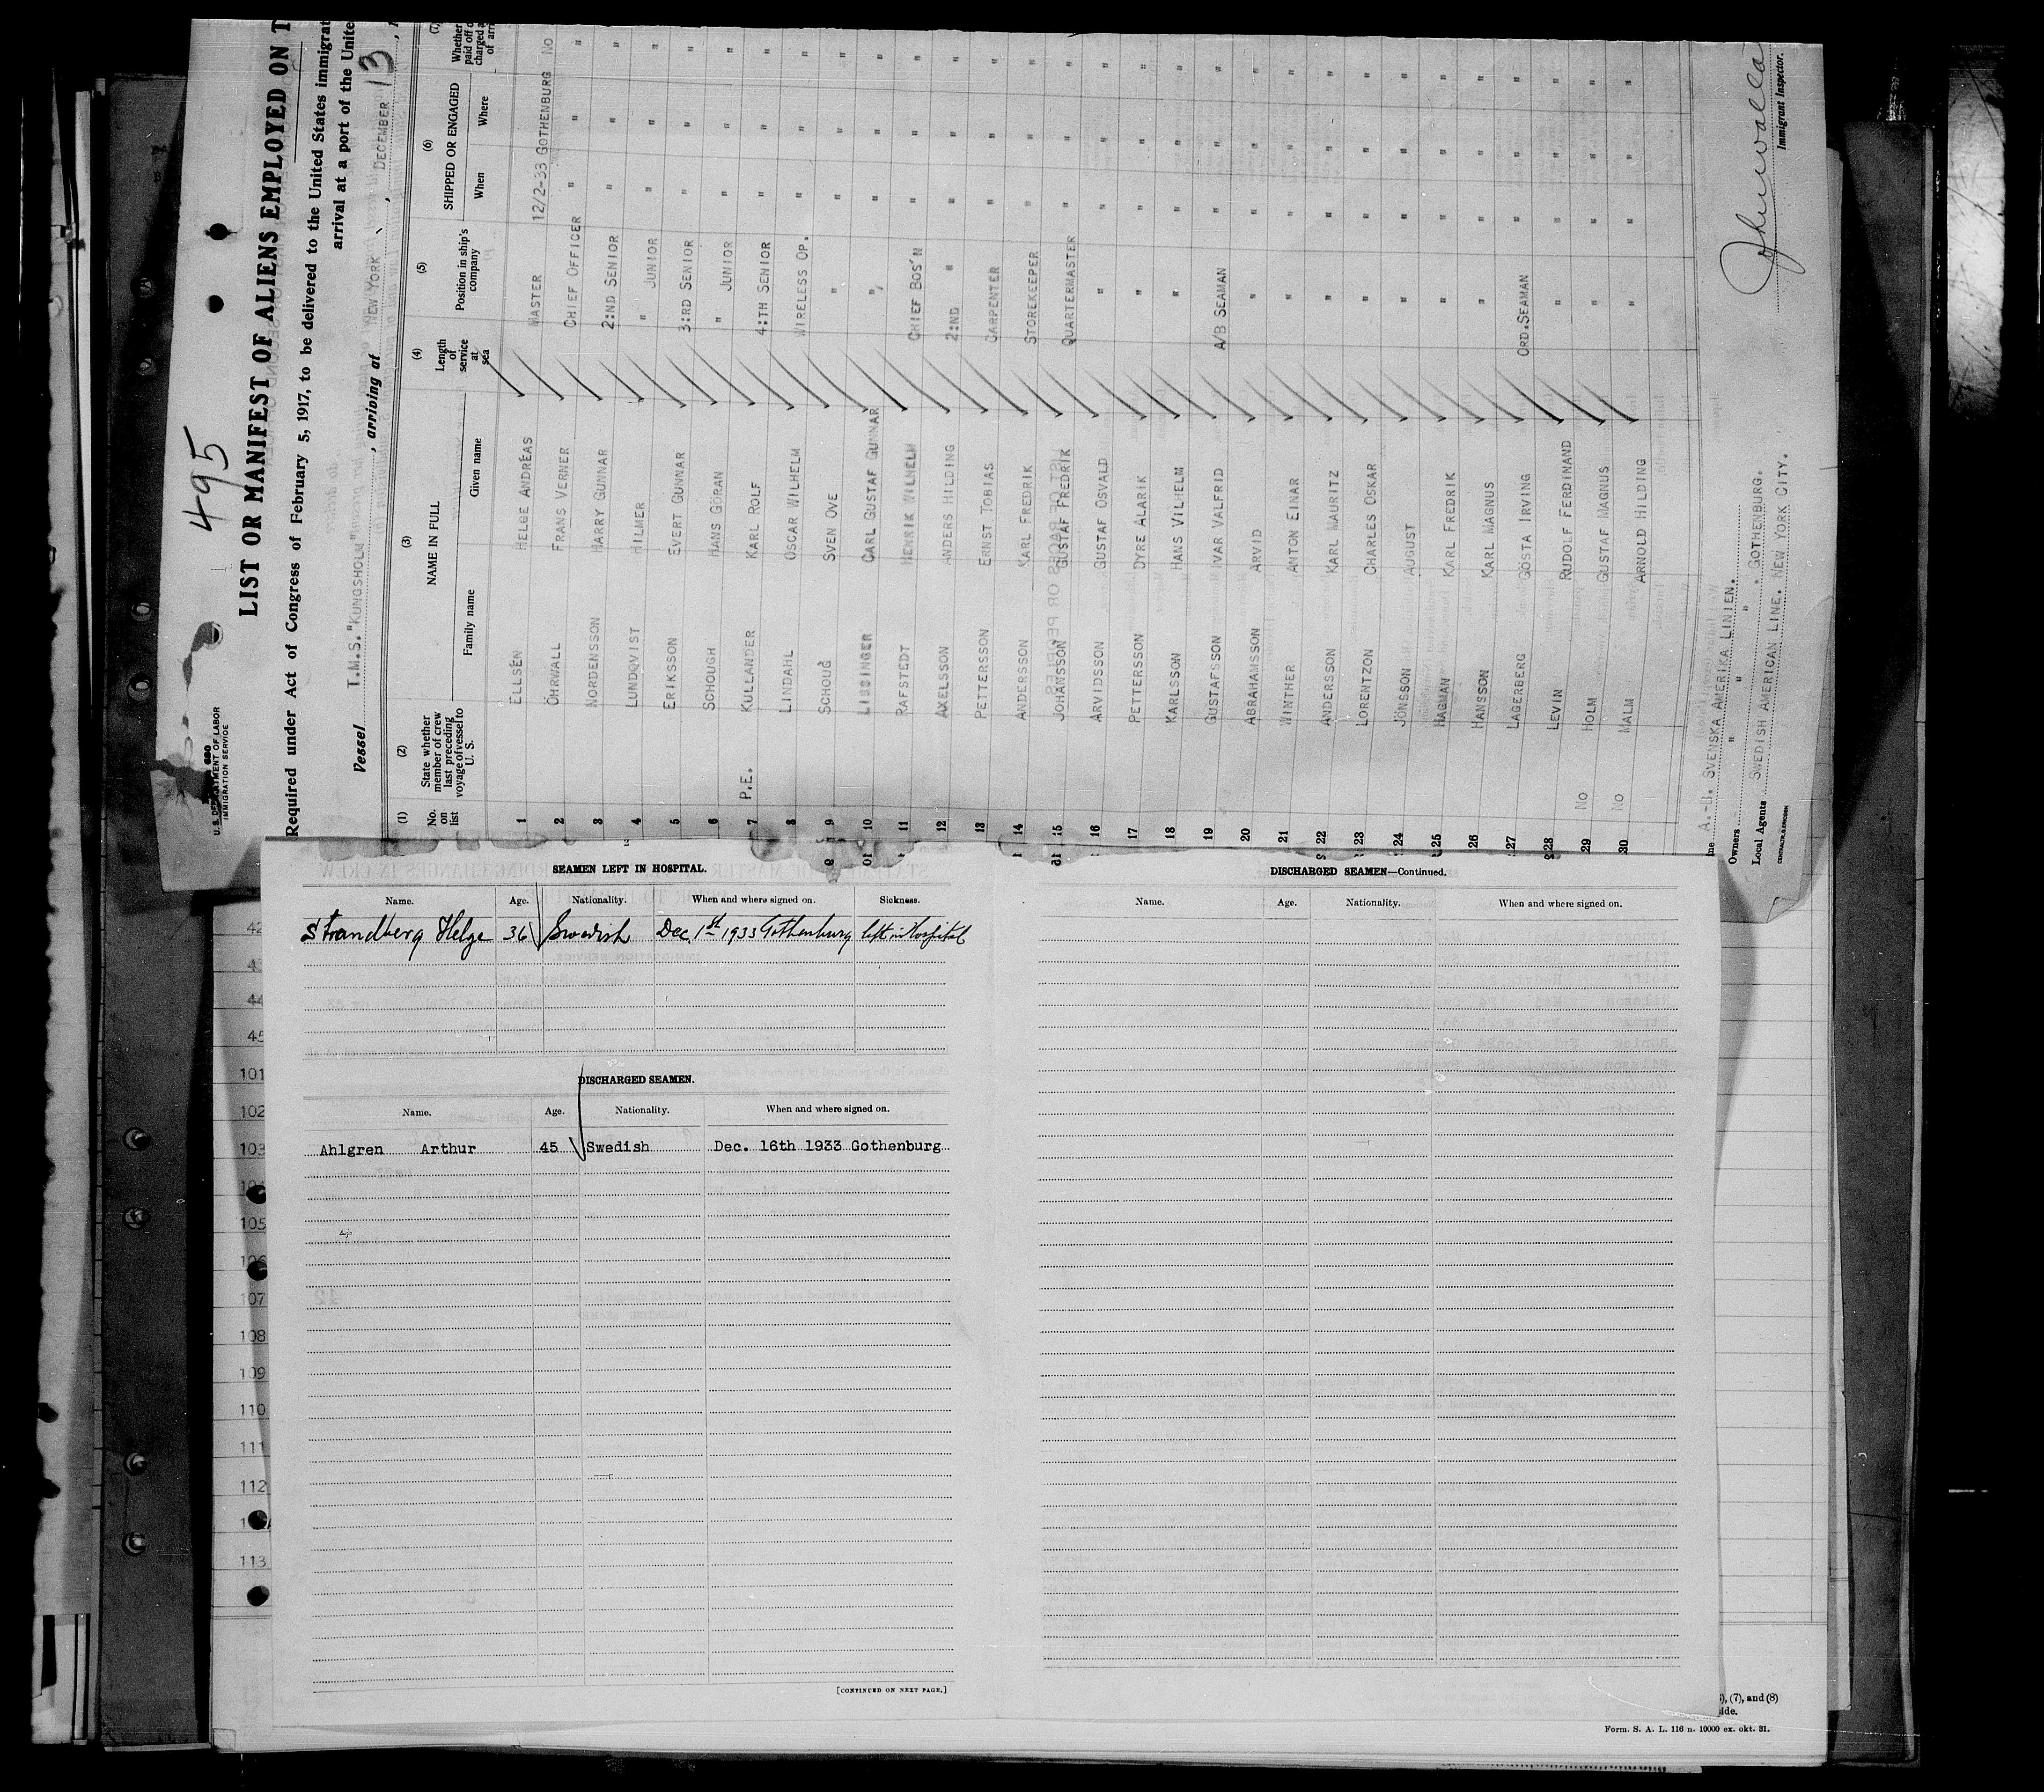 495
U. S. DEPARTMENT OF LABOR
IMMIGRATION SERVICE
LIST OR MANIFEST OF ALIENS EMPLOYED ON T
Required under Act of Congress of February 5, 1917, to be delivered to the United States immigrat
arrival at a port of the Unite
Vessel T.M.S."KUNGSHOLM", arriving at NEW YORK, DECEMBER 13,
(1) (2) (3) (4) (5) (6) (7)
No. on list State whether member of crew last preceding voyage of vessel to U. S. NAME IN FULL Family name Given name Length of service at sea Position in ship's company SHIPPED OR ENGAGED When Where Whether paid off
1 ELLSÉN HELGE ANDRÉAS MASTER 12/2-33 GOTHENBURG NO
2 ÖHRWALL FRANS VERNER CHIEF OFFICER " " "
3 NORDENSSON HARRY GUNNAR 2:ND SENIOR " " "
4 LUNDQVIST HILMER " JUNIOR " " "
5 ERIKSSON EVERT GUNNAR 3:RD SENIOR " " "
6 SCHOUGH HANS GÖRAN " JUNIOR " " "
7 P.E. KULLANDER KARL ROLF 4:TH SENIOR " " "
8 LINDAHL OSCAR WILHELM WIRELESS OP. " " "
9 SCHOUG SVEN OVE " " " "
10 LISSINGER CARL GUSTAF GUNNAR " " " "
11 RAFSTEDT HENRIK WILHELM CHIEF BOS'N " " "
12 AXELSSON ANDERS HILDING 2:ND " " " "
13 PETTERSSON ERNST TOBIAS CARPENTER " " "
14 ANDERSSON KARL FREDRIK STOREKEEPER " " "
15 JOHANSSON GUSTAF FREDRIK QUARTERMASTER " " "
16 ARVIDSSON GUSTAF OSVALD " " " "
17 PETTERSSON DYRE ALARIK " " " "
18 KARLSSON HANS VILHELM " " " "
19 GUSTAFSSON IVAR VALFRID A/B SEAMAN " " "
20 ABRAHAMSSON ARVID " " " "
21 WINTHER ANTON EINAR " " " "
22 ANDERSSON KARL MAURITZ " " " "
23 LORENTZON CHARLES OSKAR " " " "
24 JÖNSSON AUGUST " " " "
25 HAGMAN KARL FREDRIK " " " "
26 HANSSON KARL MAGNUS " " " "
27 LAGERBERG GÖSTA IRVING ORD.SEAMAN " " "
28 LEVIN RUDOLF FERDINAND " " " "
29 NO HOLM GUSTAF MAGNUS " " " "
30 NO MALM ARNOLD HILDING " " " "
A.-B. SVENSKA AMERIKA LINIEN. GOTHENBURG.
Owners " " "
Local Agents SWEDISH AMERICAN LINE. NEW YORK CITY.
Immigrant Inspector.
SEAMEN LEFT IN HOSPITAL.
Name. Age. Nationality. When and where signed on. Sickness.
Strandberg Helge 36 Swedish Dec. 1st 1933 Gothenburg left in Hospital
DISCHARGED SEAMEN.
Name. Age. Nationality. When and where signed on.
Ahlgren Arthur 45 Swedish Dec. 16th 1933 Gothenburg
[CONTINUED ON NEXT PAGE.]
DISCHARGED SEAMEN—Continued.
Name. Age. Nationality. When and where signed on.
42
43
44
45
101
102
103
105
106
107
108
109
110
111
112
113
(7), and (8)
Form. S. A. L. 116 n. 10000 ex. okt. 31.